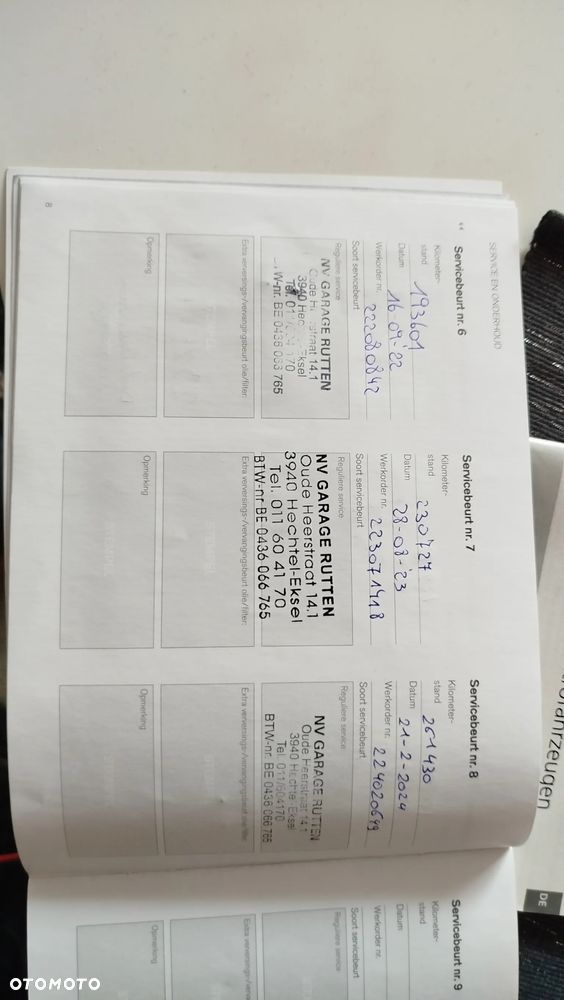 SERVICE EN ONDERHOUD
"
Servicebeurt nr. 6
Kilometer-
stand 193601
Datum 16-09-'22
Werkorder nr. 222080842
Soort servicebeurt
Reguliere service
NV GARAGE RUTTEN
Oude H straat 14.1
3940 Hec -Eksel
Tel. 01 70
W-nr. BE 0436 066 765
Extra verversings-/vervangingsbeurt olie/filter:
Opmerking
8
Servicebeurt nr. 7
Kilometer-
stand 230727
Datum 28-08-'23
Werkorder nr. 223071418
Soort servicebeurt
Reguliere service
NV GARAGE RUTTEN
Oude Heerstraat 14.1
3940 Hechtel-Eksel
Tel. 011 60 41 70
BTW-nr BE 0436 066 765
Extra verversings-/vervangingsbeurt olie/filter:
Opmerking
Servicebeurt nr. 8
Kilometer-
stand 261430
Datum 21-2-2024
Werkorder nr. 224020649
Soort servicebeurt
Reguliere service
NV GARAGE RUTTEN
Oude Heerstraat 14.1
3940 Hechtel-Eksel
Tel. 011/604170
BTW-nr. BE 0436 066 765
Extra verversings-/vervangingsbeurt olie/filter:
Opmerking
Servicebeurt nr. 9
Kilometer-
stand
Datum
Werkorder nr.
Soort servicebeurt
Reguliere service
Extra verversings-/vervangingsbeurt
Opmerking
fahrzeugen
DE
OTOMOTO